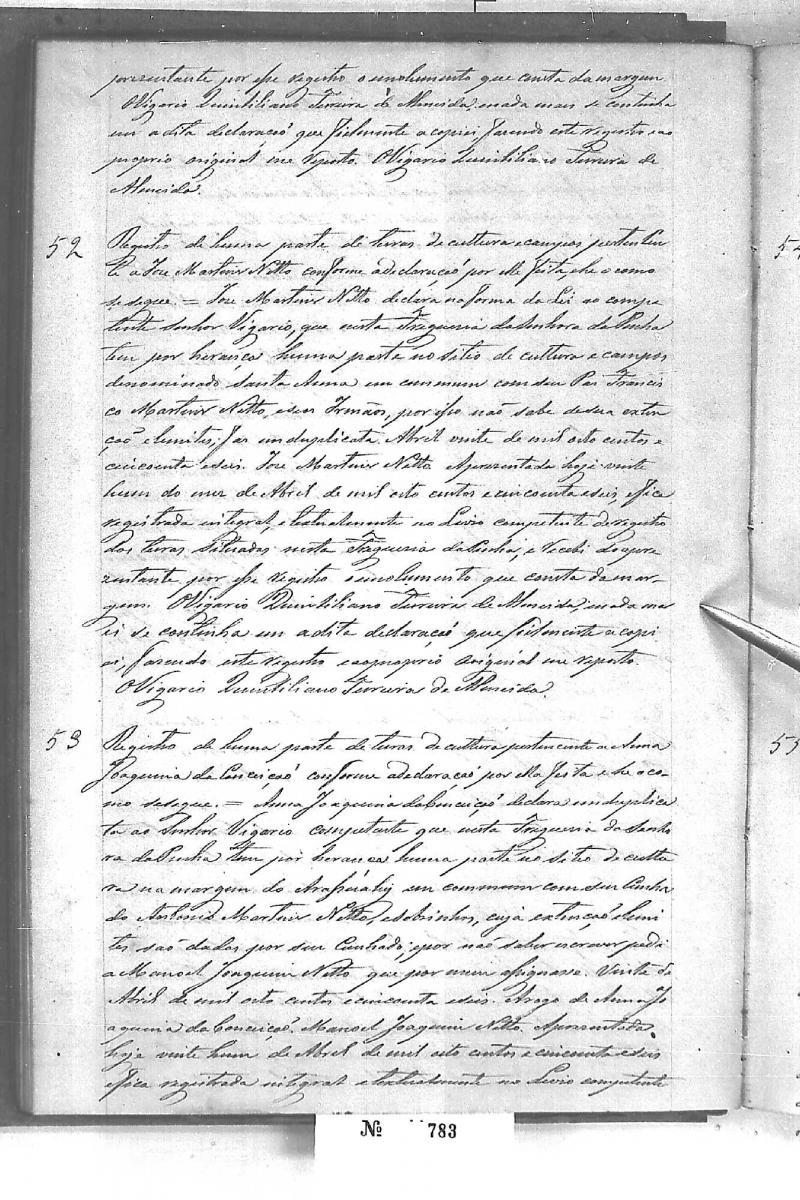 prezentante por esse registro o emolumento que consta da margem
O Vigario Quintiliano Ferreira de Almeida, e nada mais se continha
em a dita declaração que fielmente a copiei fazendo este registro e ao
proprio original me reporto. O Vigario Quintiliano Ferreira de
Almeida.
52 Registro de huma parte de terras de cultura e campos pertencen
te a Jose Martins Netto conforme a declaração por elle feita, e he o como
se segue. = Jose Martins Netto declara na forma da Lei ao compe
tente Senhor Vigario, que nesta Freguezia da Senhora da Penha
tem por herança huma parte no sitio de cultura e campos
denominado Santa Anna em commum com seu Pai Francis
co Martins Netto, e seus Irmãos, por isso não sabe de sua exten
ção e lemites; faz em duplicata. Abril vinte de mil oito centos e
cincoenta e seis. Jose Martins Netto. Aprezentada hoje vinte
hum do mez de Abril de mil oito centos e cincoenta e seis e fica
registrada integral, e textualmente no Livro competente de registro
das terras situadas nesta Freguezia da Penha, e recebi do apre
zentante por esse registro o emolumento que consta da mar-
gem. O Vigario Quintiliano Ferreira de Almeida, e nada ma
is se continha em a dita declaração que fielmente a copi
ei, fazendo este registro e ao proprio original me reporto.
O Vigario Quintiliano Ferreira de Almeida.
53 Registro de huma parte de terras de cultura pertencente a Anna
Joaquina da Conceição conforme a declaração por ella feita e he o co-
mo se segue. = Anna Joaquina da Conceição declara em duplica
ta ao Senhor Vigario competente que nesta Freguezia da Senho
ra da Penha tem por herança huma parte no sitio de cultu
ra na margem do Arassuahy em commum com seu Cunha
do Antonio Martins Netto, e sobrinhos, cuja extenção e lemi
tes são dadas por seu Cunhado; e por não saber escrever pedi
a Manoel Joaquim Netto que por mim assignasse. Vinte de
Abril de mil oito centos e cincoenta e seis. Arogo de Anna Jo
aquina da Conceição. Manoel Joaquim Netto. Aprezentada
hoje vinte hum de Abril de mil oito centos e cincoenta e seis
e fica registrada integral e textualmente no Livro competente
54
55
Nº 783